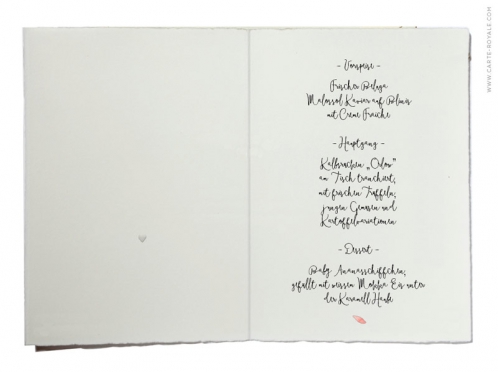 - Vorspeise -
Frischer Beluga
Malossol Kaviar auf Blinis
mit Creme Fraiche
- Hauptgang -
Kalbsrücken „Orlow"
am Tisch tranchiert,
mit frischen Trüffeln,
jungen Gemüsen und
Kartoffelvariationen
- Dessert -
Baby Ananasschiffchen,
gefüllt mit weissem Mokka Eis unter
der Karamell Haube
WWW.CARTE-ROYALE.COM